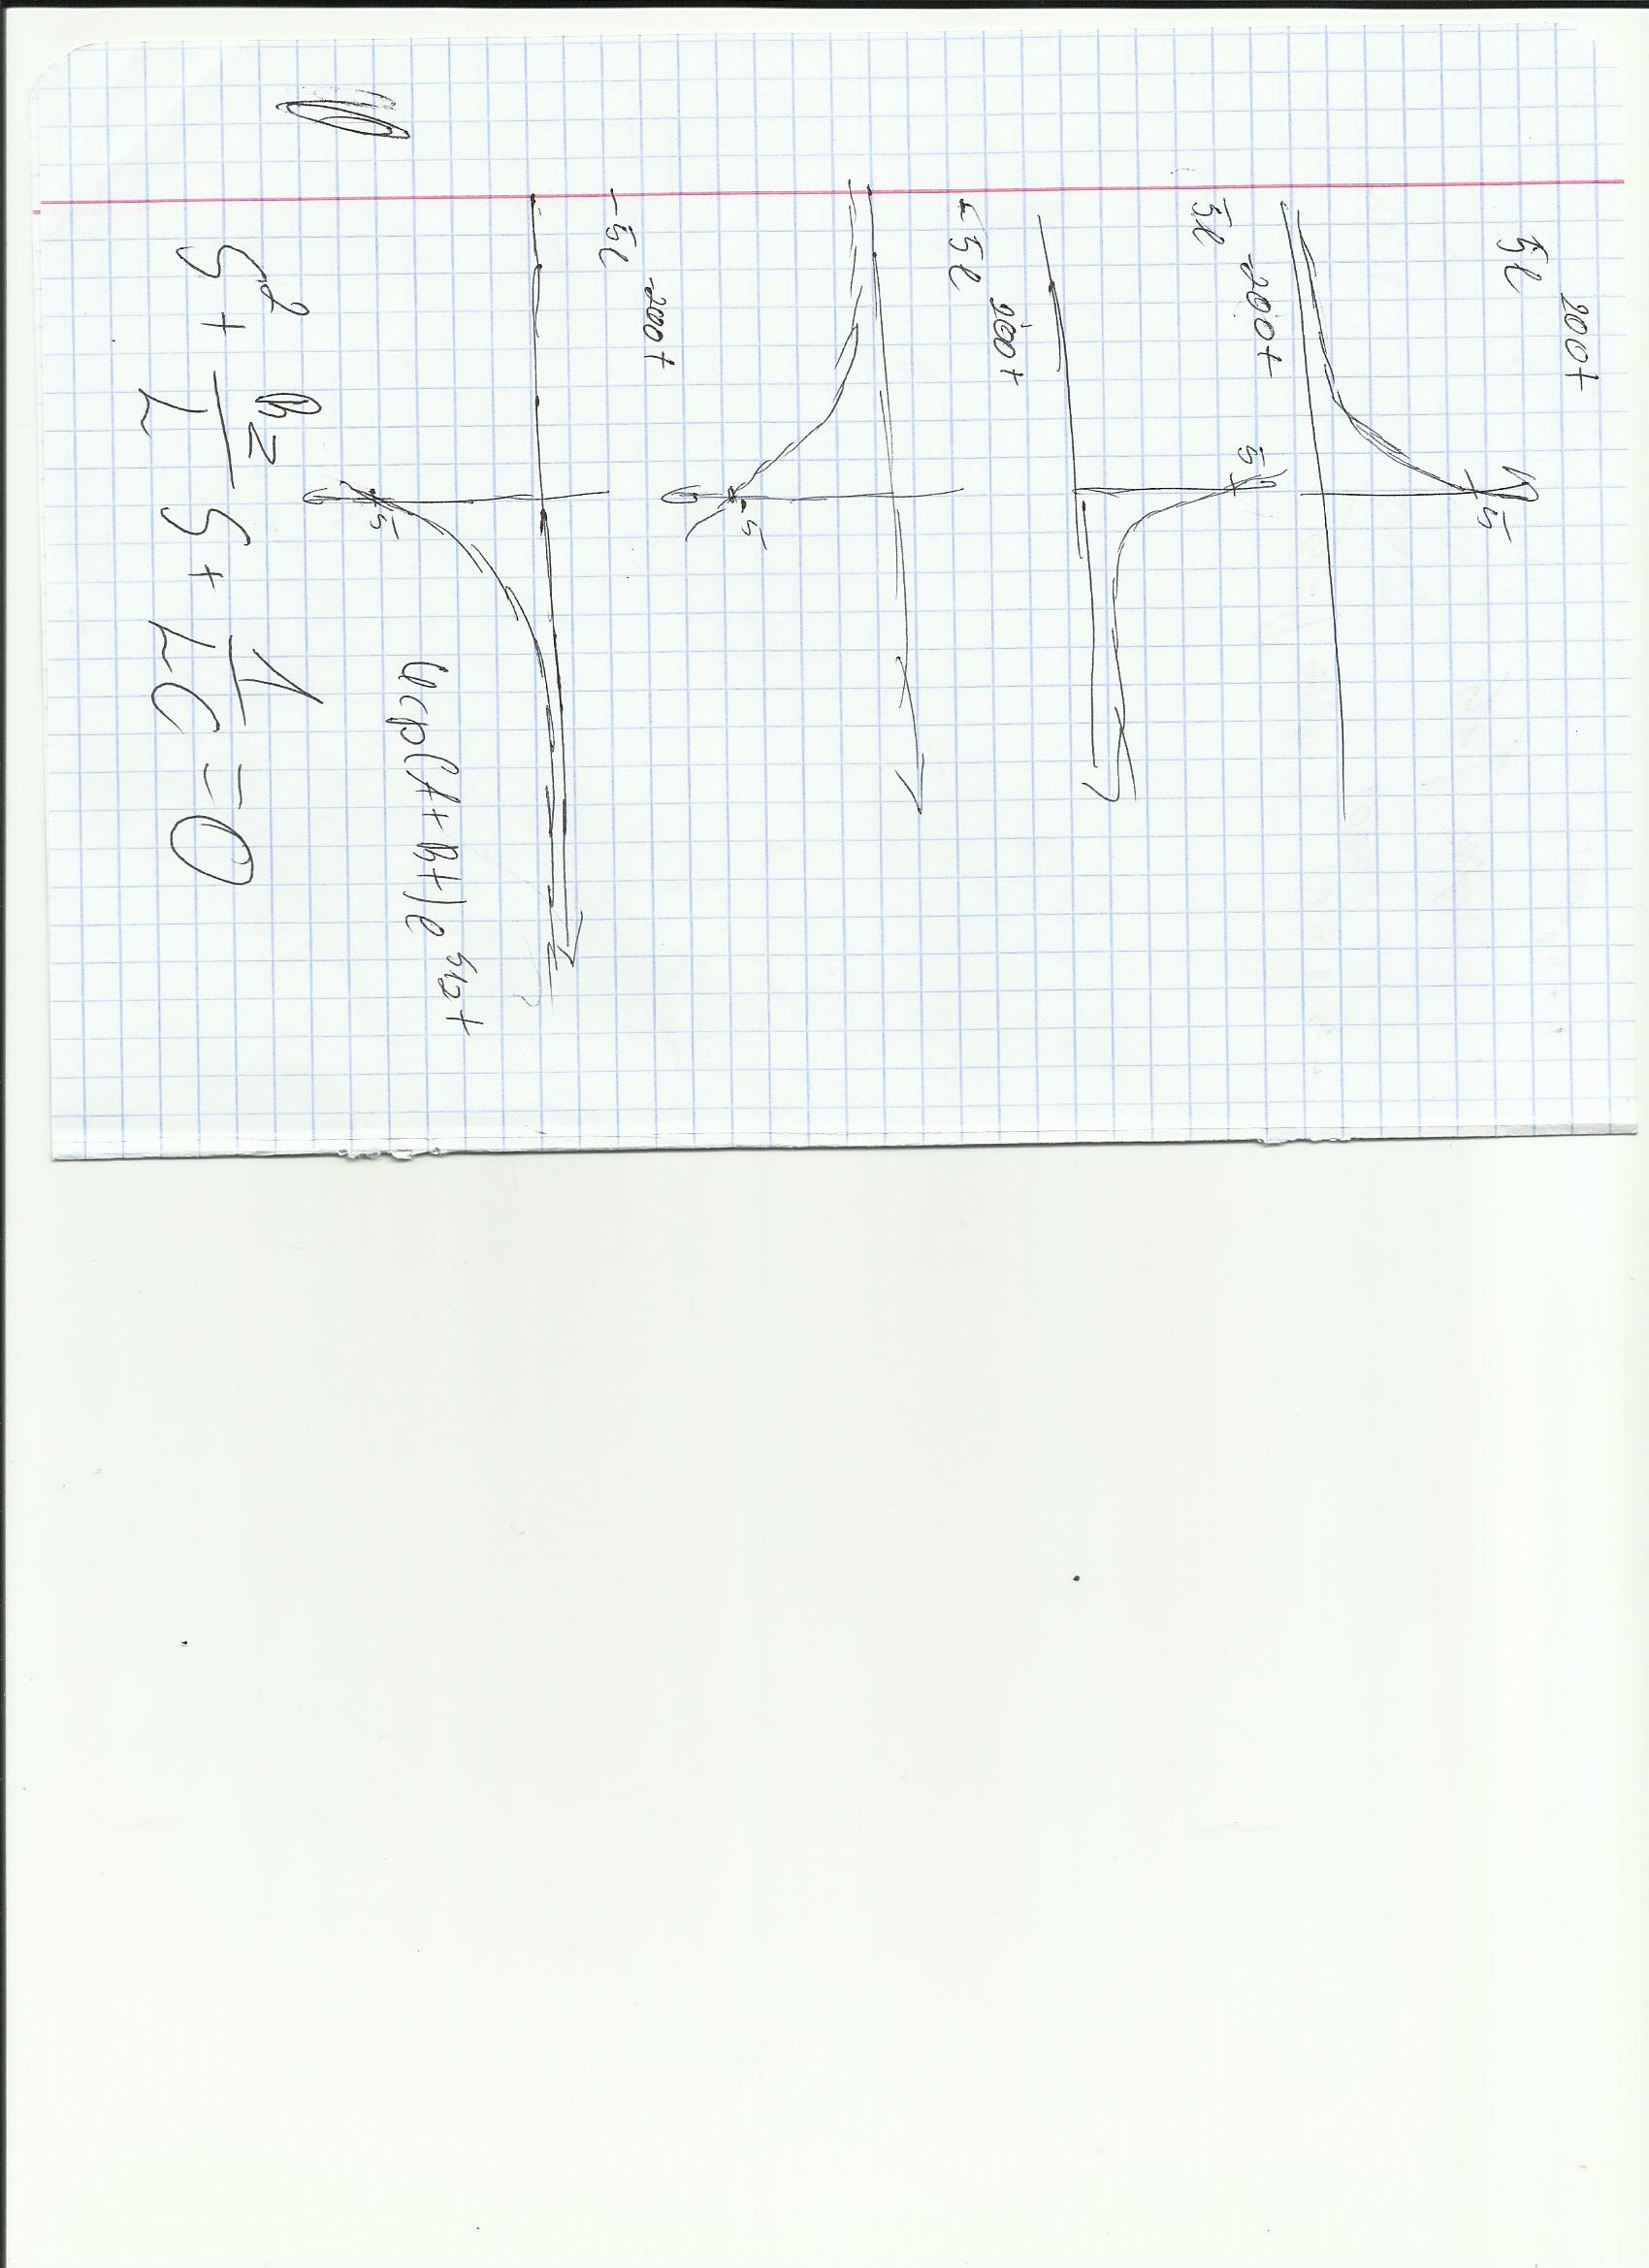 5e^200t
5
5e^-200t
5
-5e^200t
-5
-5e^-200t
5
(A+Bt)e^S12t
S^2 + R2/L S + 1/LC = 0